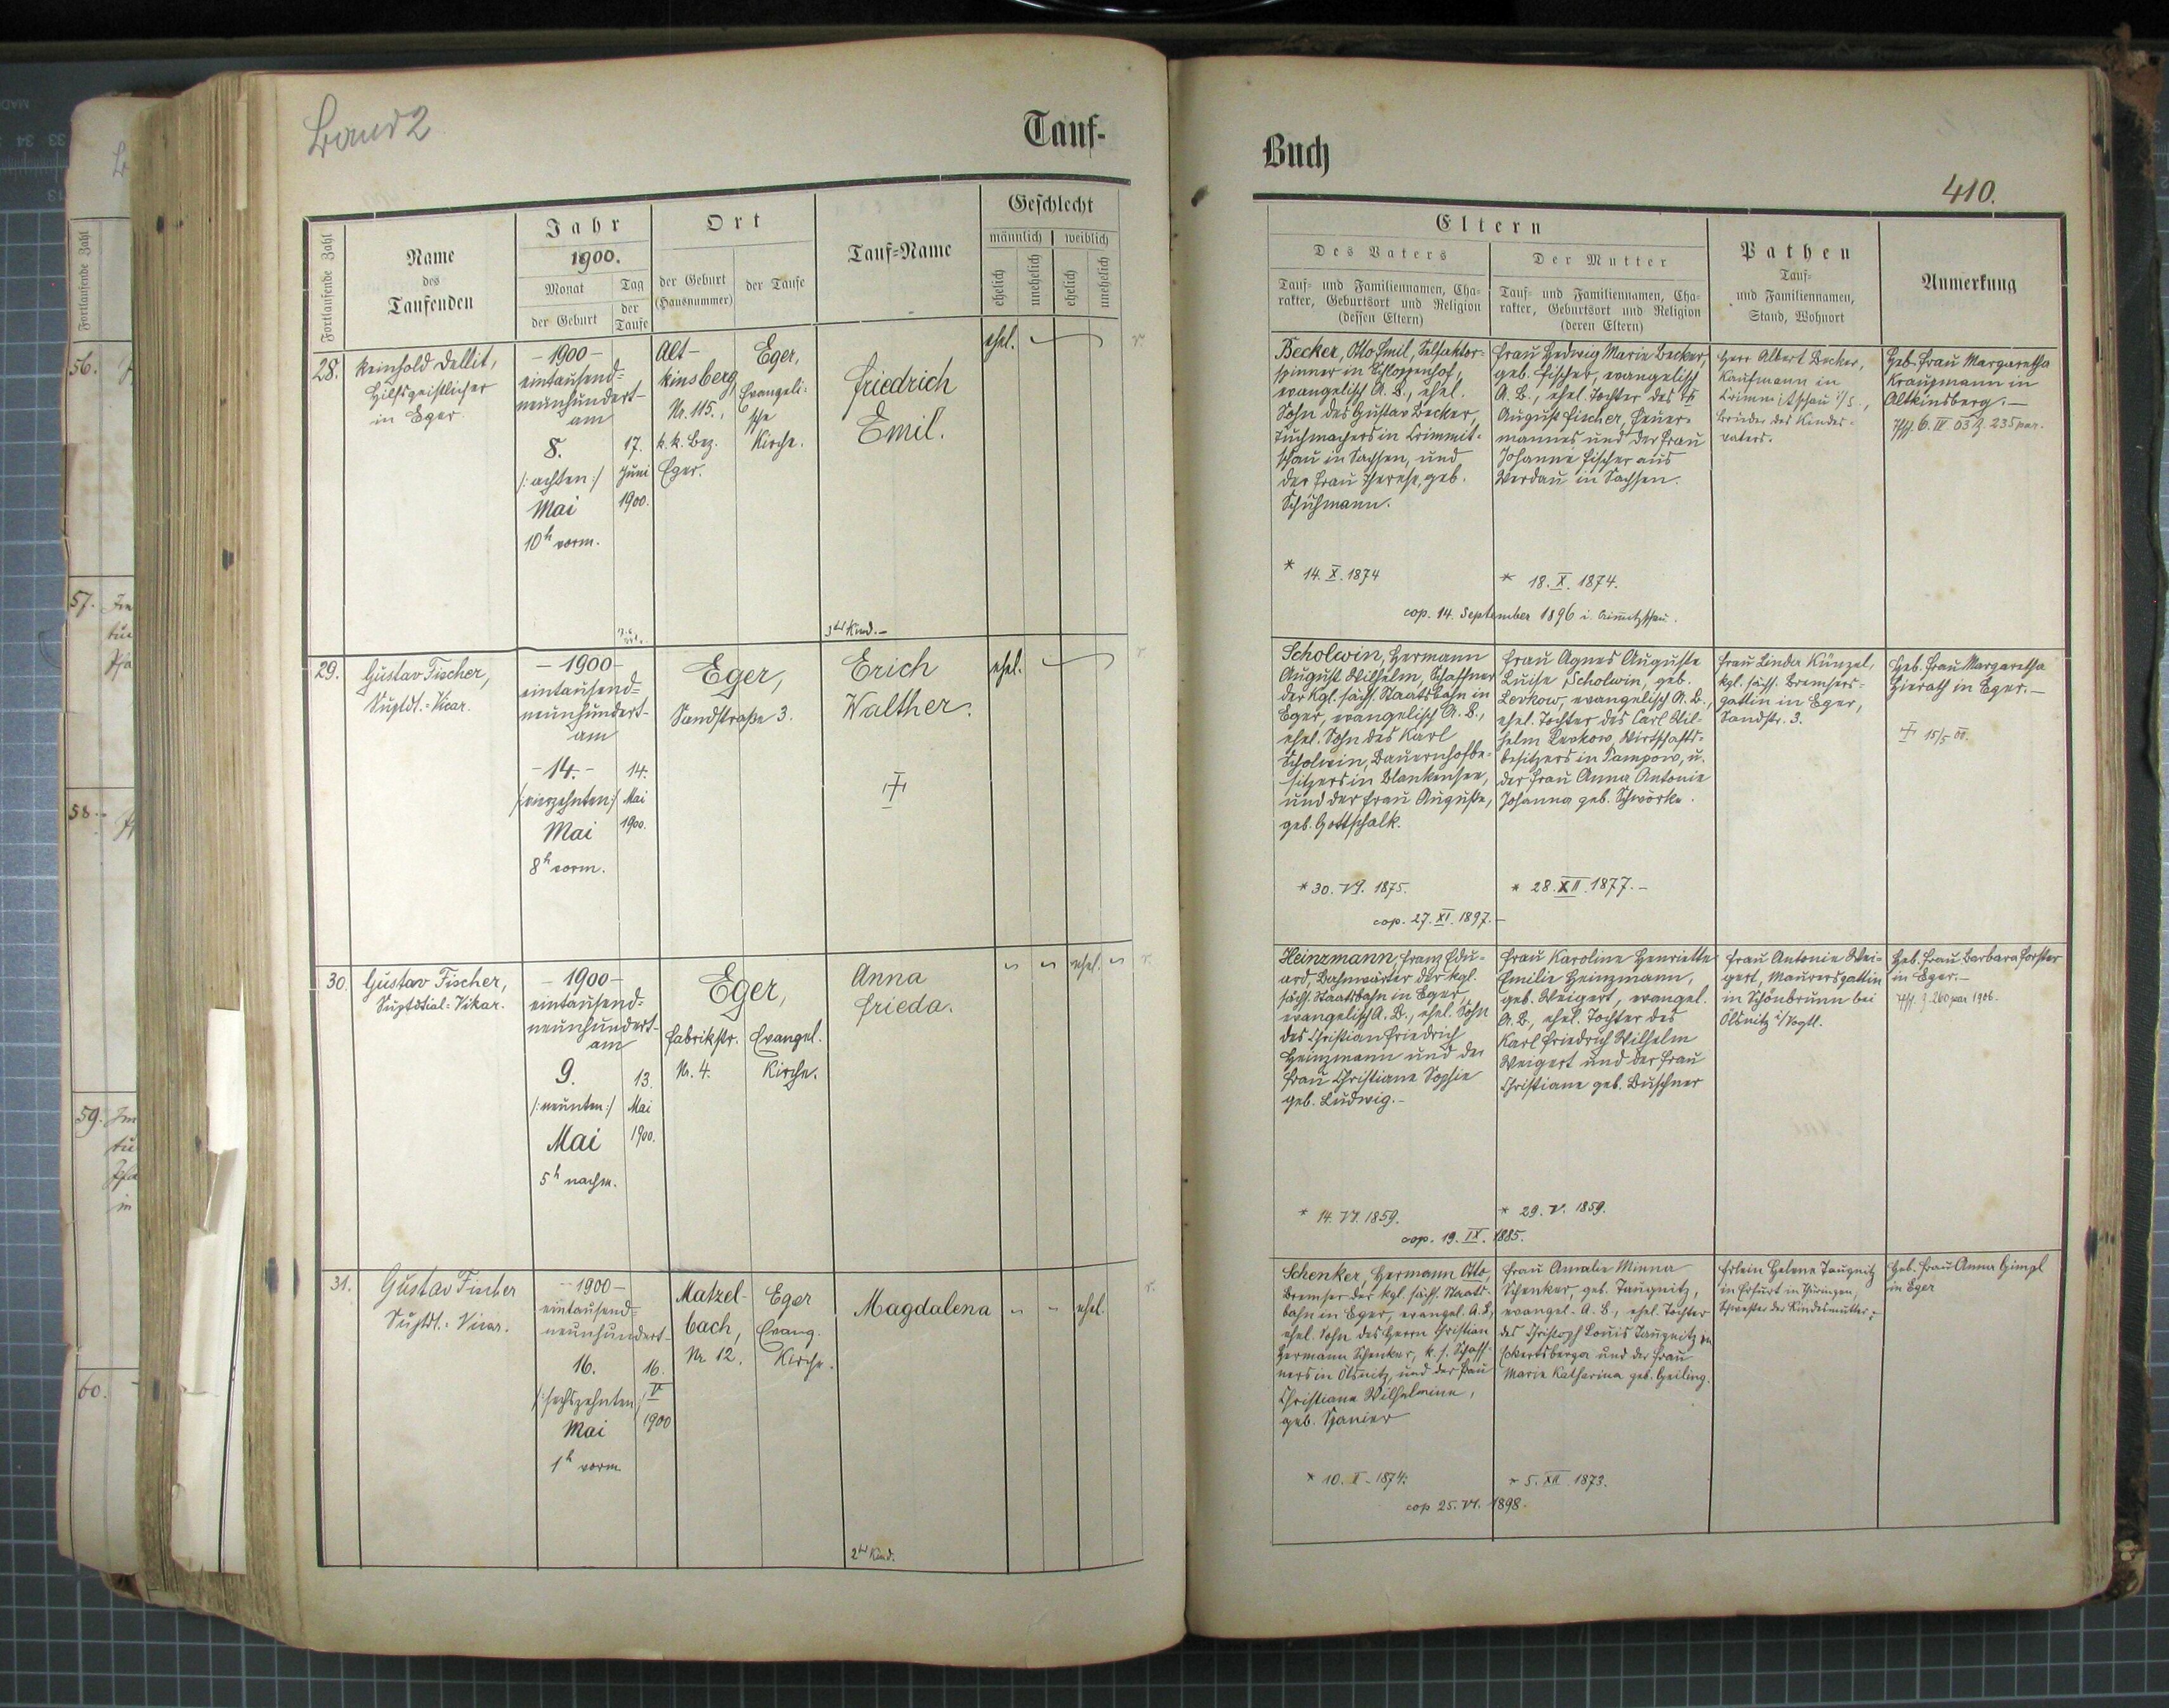 Band 2
Tauf-
Fortlaufende Zahl
Name
des
Taufenden
Jahr
1900.
Monat
der Geburt
Tag
der
Taufe
Ort
der Geburt
(Hausnummer)
der Taufe
Tauf-Name
Geschlecht
männlich
weiblich
ehelich
unehelich
ehelich
unehelich
28.
Reinhold Dellit,
Hilfsgeistlicher
in Eger.
-1900-
eintausend=
neunhundert-
am
8.
/: achten :/
Mai
10h vorm.
17.
Juni
1900.
Alt-
kinsberg
Nr. 115.,
k.k. Bez.
Eger.
Eger,
Evangeli-
sche
Kirche.
Friedrich
Emil.
3tes Kind.-
ehel.
29.
Gustav Fischer,
Suptdt.=Vicar.
-1900-
eintausend=
neunhundert-
am
-14.-
/:vierzehnten:/
Mai
8h vorm.
14.
Mai
1900.
Eger,
Sandstraße 3.
Erich
Walther.
ehel.
30.
Gustav Fischer,
Suptdtial=Vikar.
-1900-
eintausend=
neunhundert-
am
9.
/:neunten:/
Mai
5h nachm.
13.
Mai
1900.
Eger,
Fabrikstr.
Nr. 4.
Evangel.
Kirche.
Anna
Frieda.
ehel.
31.
Gustav Fischer
Suptdt.=Vicar.
-1900-
eintausend=
neunhundert-
16.
/:sechszehnten
Mai
1h vorm.
16.
V
1900
Matzel-
bach,
Nr 12.
Eger
Evang.
Kirche.
Magdalena
2tes Kind.
ehel.
Buch
410.
Eltern
Des Vaters
Tauf- und Familiennamen, Cha-
rakter, Geburtsort und Religion
(dessen Eltern)
Der Mutter
Tauf- und Familiennamen, Cha-
rakter, Geburtsort und Religion
(deren Eltern)
Pathen
Tauf-
und Familiennamen,
Stand, Wohnort
Anmerkung
Becker, Otto Emil, Selfaktor-
spinner in
evangelisch A. B., ehel.
Sohn des Gustav Becker,
Tuchmachers in Crimmit-
schau in Sachsen, und
der Frau Therese, geb.
Schuhmann.
* 14. X. 1874
Frau Hedwig Marie Becker,
geb. Fischer, evangelisch
A. B., ehel. Tochter des
August Fischer, Feuer-
mannes und der Frau
Johanne Fischer aus
Werdau in Sachsen.
* 18. X. 1874.
cop. 14. September 1896 i. Crimmitzschau.
Herr Albert Becker,
Kaufmann in
Crimmitschau i/S.,
Bruder des Kindes-
vaters.
Heb. Frau Margaretha
Kraupmann in
Altkinsberg.-
6. IV 03 Z. 235
Scholwin, Hermann
August Wilhelm, Schaffner
der kgl. sächs. Staatsbahn in
Eger, evangelisch A. B.,
ehel. Sohn des Karl
Scholwin, Bauernhofbe-
sitzers in Blankensee,
und der Frau Auguste,
geb. Gottschalk.
* 30. VI. 1875.
Frau Agnes Auguste
Luise Scholwin, geb.
Levkow, evangelisch A. B.,
ehel. Tochter des Carl Wil-
helm Levkow, Wirtschafts-
besitzers in Pampow, u.
der Frau Anna Antonie
Johanna geb. Schwörke.
* 28. XII. 1877.-
cop. 27. XI. 1897.-
Frau Linda Künzel,
kgl. sächs. Bremsers-
gattin in Eger,
Sandstr. 3.
Heb. Frau Margaretha
Hierath in Eger.-
15/5 00.
Heinzmann, Franz Edu-
ard, Bahnwärter der kgl.
sächs. Staatsbahn in Eger,
evangelisch A. B., ehel. Sohn
des Christian Friedrich
Heinzmann und der
Frau Christiane Sophie
geb. Ludwig.-
* 14. VI. 1859.
Frau Karoline Henriette
Emilie Heinzmann,
geb. Weigert, evangel.
A. B., ehel. Tochter des
Karl Friedrich Wilhelm
Weigert und der Frau
Christiane geb. Buschner
* 29. V. 1859.
cop. 19. IX. 1885.
Frau Antonie Wei-
gert, Maurersgattin
in Schönbrunn bei
Ölsnitz i/Vogtl.
Heb. Frau Barbara Forster
in Eger.-
Z. 260 1906.
Schenker, Hermann Otto,
Bremser der kgl. sächs. Staats-
bahn in Eger, evangel. A. B.,
ehel. Sohn des Herrn Christian
Hermann Schenker, k. s. Schaff-
ners in Ölsnitz, und der Frau
Christiane Wilhelmine,
geb. Spanier
* 10. X. 1874.
Frau Amalie Minna
Schenker, geb. Taugnitz,
evangel. A. B., ehel. Tochter
des Christoph Louis Taugnitz in
Eckertsberga und der Frau
Marie Katharina geb. Heiling.
* 5. XII. 1873.
cop 25. VI. 1898.
Frlein Helene Taugnitz
in Erfurt in Thüringen,
Schwester der Kindesmutter.-
Heb. Frau Anna Himpl
in Eger
56.
57.
58.
59.
60.